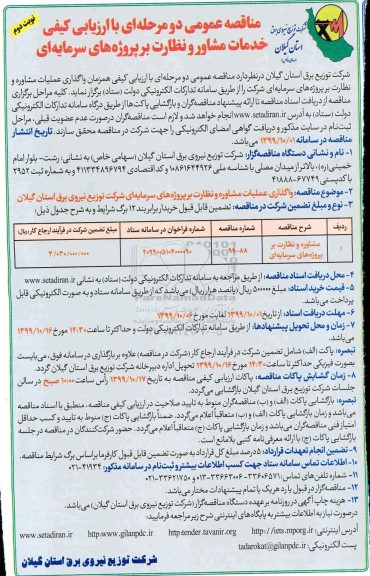 نوبت دوم
مناقصه عمومی دو مرحله‌ای با ارزیابی کیفی
خدمات مشاور و نظارت بر پروژه‌های سرمایه‌ای
شرکت توزیع نیروی برق
استان گیلان
شرکت توزیع برق استان گیلان درنظردارد مناقصه عمومی دو مرحله‌ای با ارزیابی کیفی همزمان واگذاری عملیات مشاوره و
نظارت بر پروژه‌های سرمایه‌ای شرکت را از طریق سامانه تدارکات الکترونیکی دولت (ستاد) برگزار نماید. کلیه مراحل برگزاری
مناقصه از دریافت اسناد مناقصه تا ارائه پیشنهاد مناقصه‌گران و بازگشایی پاکت‌ها از طریق درگاه سامانه تدارکات الکترونیکی
دولت (ستاد) به آدرس www.setadiran.ir انجام خواهد شد و لازم است مناقصه‌گران درصورت عدم عضویت قبلی، مراحل
ثبت‌نام در سایت مذکور و دریافت گواهی امضای الکترونیکی را جهت شرکت در مناقصه محقق سازند. تاریخ انتشار
مناقصه در سامانه ۱۳۹۹/۱۰/۰۱ می‌باشد.
۱- نام و نشانی دستگاه مناقصه‌گزار: شرکت توزیع نیروی برق استان گیلان (سهامی خاص) به نشانی: رشت- بلوار امام
خمینی (ره)، بالاتر از میدان مصلی با شناسه ملی ۱۰۸۶۱۶۴۴۹۲۶ و کد اقتصادی ۴۱۱۳۳۴۸۹۶۷۹۴ و به شماره ثبت ۲۹۵۲
با کدپستی ۶۷۷۴۹-۴۱۸۸۸
۲- موضوع مناقصه: واگذاری عملیات مشاوره و نظارت بر پروژه‌های سرمایه‌ای شرکت توزیع نیروی برق استان گیلان
۳- نوع و مبلغ تضمین شرکت در مناقصه: تضمین قابل قبول خریدار برابر بند ۱۲ برگ شرایط و به شرح جدول ذیل:
ردیف شرح مناقصه شماره مناقصه شماره فراخوان در سامانه ستاد مبلغ تضمین شرکت در فرآیند ارجاع کار (ریال)
۱ مشاوره و نظارت بر پروژه‌های سرمایه‌ای ۹۹-۸۸ ۲۰۹۹۰۰۵۱۰۴۰۰۰۰۹۰ ۳/۰۳۰/۰۰۰/۰۰۰
۴- محل دریافت اسناد مناقصه: از طریق مراجعه به سامانه تدارکات الکترونیکی دولت (ستاد) به نشانی www.setadiran.ir
۵- قیمت خرید اسناد: مبلغ ۵۰۰۰۰۰ ریال (پانصد هزار ریال) می‌باشد که از طریق سامانه ستاد و به صورت الکترونیکی قابل
پرداخت می‌باشد.
۶- مهلت دریافت اسناد: از تاریخ ۱۳۹۹/۱۰/۰۱ لغایت مورخ ۱۳۹۹/۱۰/۰۶
۷- زمان و محل تحویل پیشنهادها: از طریق سامانه تدارکات الکترونیکی دولت و حداکثر تا ساعت ۱۴:۳۰ مورخ ۱۳۹۹/۱۰/۱۶
می‌باشد.
تبصره: پاکت (الف) شامل تضمین شرکت در فرآیند ارجاع کار (شرکت در مناقصه) علاوه بر بارگذاری در سامانه فوق، می‌بایست
بصورت فیزیکی حداکثر تا ساعت ۱۴:۳۰ مورخ ۱۳۹۹/۱۰/۱۶ تحویل اداره دبیرخانه شرکت توزیع برق استان گیلان گردد.
۸- زمان گشایش پاکات مناقصه: پاکات ارزیابی کیفی مناقصه به تاریخ ۱۳۹۹/۱۰/۱۷ رأس ساعت ۱۰:۰۰ صبح در سالن
جلسات شرکت توزیع برق استان گیلان بازگشایی می‌گردد.
تبصره: بازگشایی پاکات (الف) و (ب) مناقصه‌گران منوط به تایید صلاحیت در ارزیابی کیفی مناقصه، منطبق با اسناد مناقصه
می‌باشد و زمان بازگشایی پاکات (الف) و (ب) متعاقباً اعلام می‌گردد. ضمناً بازگشایی پاکات (ج) منوط به تایید و کسب حداقل
امتیاز فنی مناقصه‌گران می‌باشد و زمان بازگشایی پاکات (ج) متعاقباً اعلام می‌گردد. حضور شرکت‌کنندگان در مناقصه در جلسه
بازگشایی پاکات (ج) با ارائه معرفی‌نامه کتبی بلامانع است.
۹- تضمین انجام تعهدات قرارداد: ۵ درصد مبلغ کل قرارداد به صورت تضمین قابل قبول کارفرما براساس برگ شرایط مناقصه.
۱۰- اطلاعات تماس سامانه ستاد جهت کسب اطلاعات بیشتر و ثبت‌نام در سامانه مذکور: ۴۱۹۳۴-۰۲۱
۱۱- شماره تلفن‌های تماس:
۱۲- مناقصه‌گزار در قبول یا رد هر یک یا تمام پیشنهادات مختار می‌باشد.
۱۳- هزینه چاپ آگهی در روزنامه برعهده دستگاه مناقصه‌گزار (شرکت توزیع نیروی برق استان گیلان) می‌باشد.
درصورت نیاز به اطلاعات بیشتر به پایگاه‌های اینترنتی شرح زیر مراجعه فرمایید:
آدرس اینترنتی: http://iets.mporg.ir http:tender.tavanir.org http:www.gilanpdc.ir www.setadiran.ir
پست الکترونیکی: tadarokat@gilanpdc.ir
شرکت توزیع نیروی برق استان گیلان